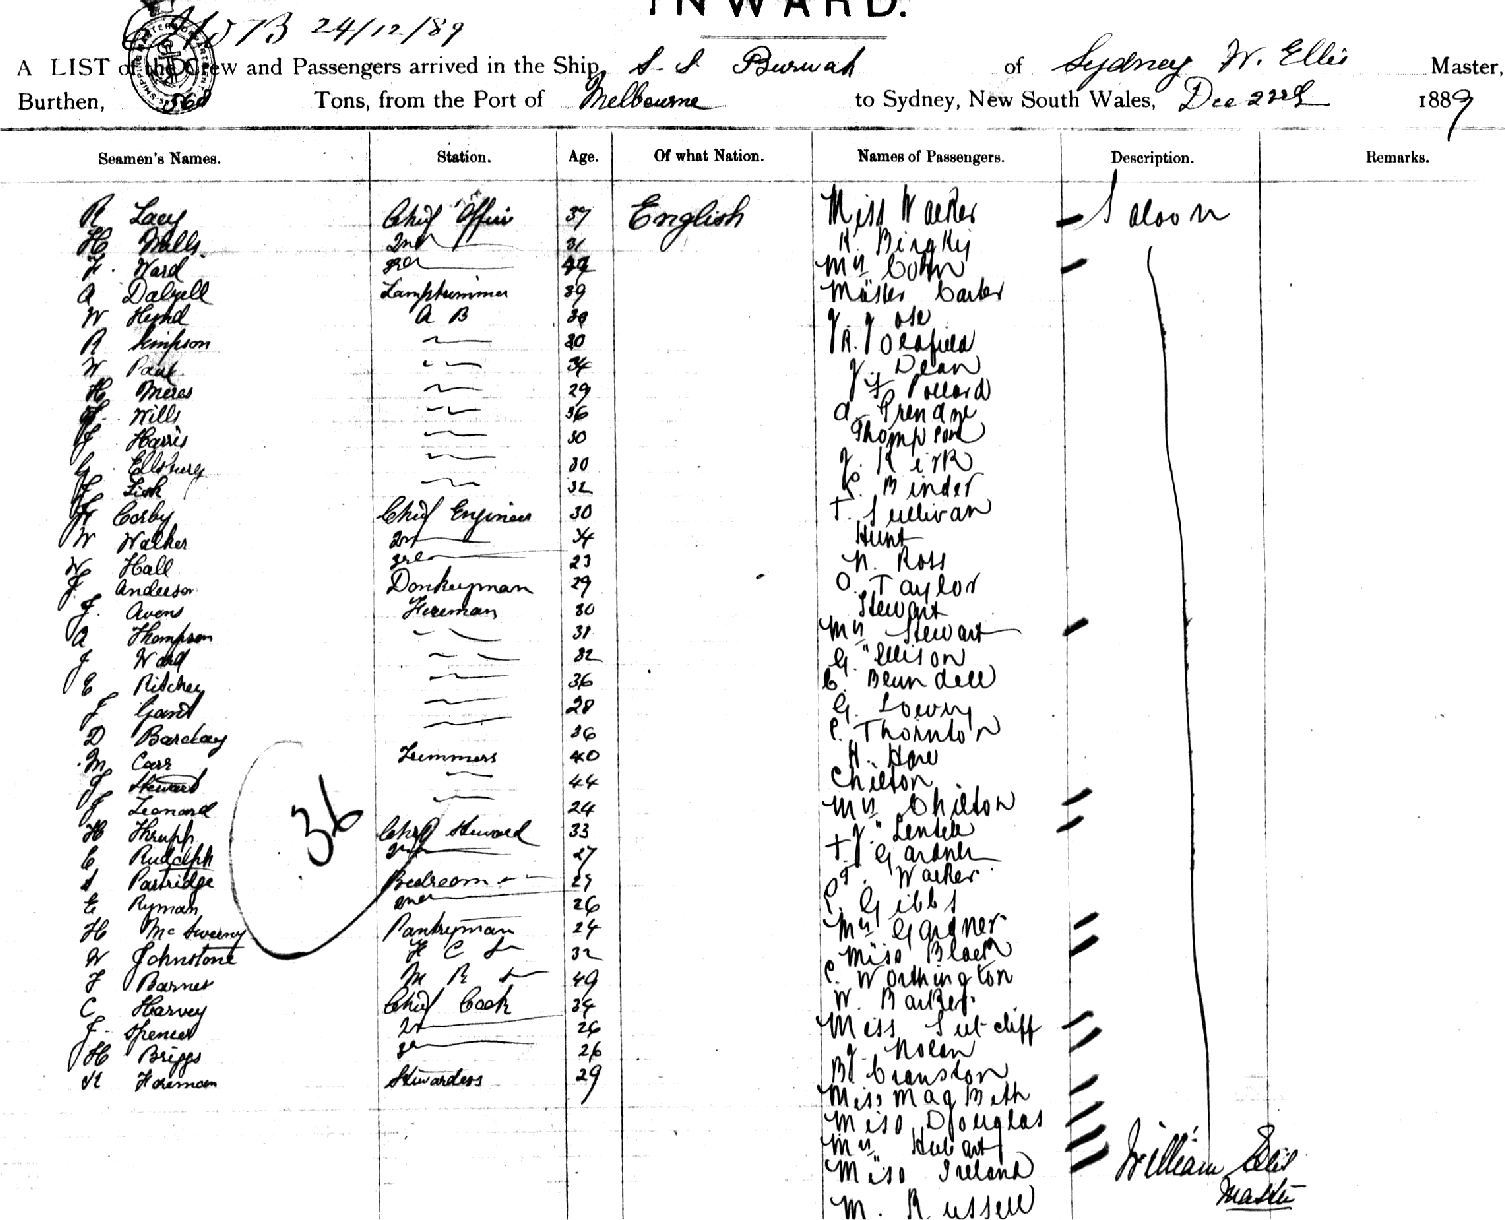 INWARD.
24/12/89
A LIST of the Crew and Passengers arrived in the Ship S. S Burwah of Sydney W. Ellis Master,
Burthen, Tons, from the Port of Melbourne to Sydney, New South Wales, Dec 22nd 1889
Seamen's Names. Station. Age. Of what Nation. Names of Passengers. Description. Remarks.
R Lacy Chief Officer 37 English Miss Walker Saloon
H Mills 2nd 31
F. Ward 3rd Mrs Cohn
A Dalzell Lamptrimmer 39 Master Carter
W Hynd A B 30 J. Jose
A Simpson 30 A. J Oldfield
W Paul 34 J. Dean
H Meres 29 J. F Pollard
J. Wills 36 A. Grendon
J Harris 30 Thompson
G. Ellsburg 30 J. Kirk
F Lish 32 G. Binder
W Corby Chief Engineer 30 T. Sullivan
W Walker 2nd 34 Hunt
W Hall 3rd 23 N. Ross
J. Anderson Donkeyman 29 O. Taylor
J. Avens Fireman 30 Stewart
A Thompson 31 Mrs Stewart
J Ward 32 G. Ellison
E Ritchey 36 C. Blundell
J Gant 28 G. Lowry
D Barclay 36 C. Thornton
M Carr Trimmers 40 H. Howe
J Steward 44 Chilton
J Leonard 24 Mrs Chilton
H Thrupp Chief Steward 33 " Lendell
E Rudolph 2nd 27 T. J Gardner
S Partridge Bedroom 29 F. Walker
E Ryman 26 C. Gibbs
H McSweeny Pantryman 24 Mrs Gardner
W Johnstone F C S 32 Miss Black
F Barnes M R S 49 C. Worthington
C Harvey Chief Cook 34 W. Barker
J. Spencer 2nd 26 Miss Sutcliff
H Briggs 3rd 26 J. Nolan
Foreman Stewardess 29 Cranston
36
Miss MagBeth
Miss Douglas
Mrs Hubart
Miss Ireland
M. Russell
William Ellis
Master